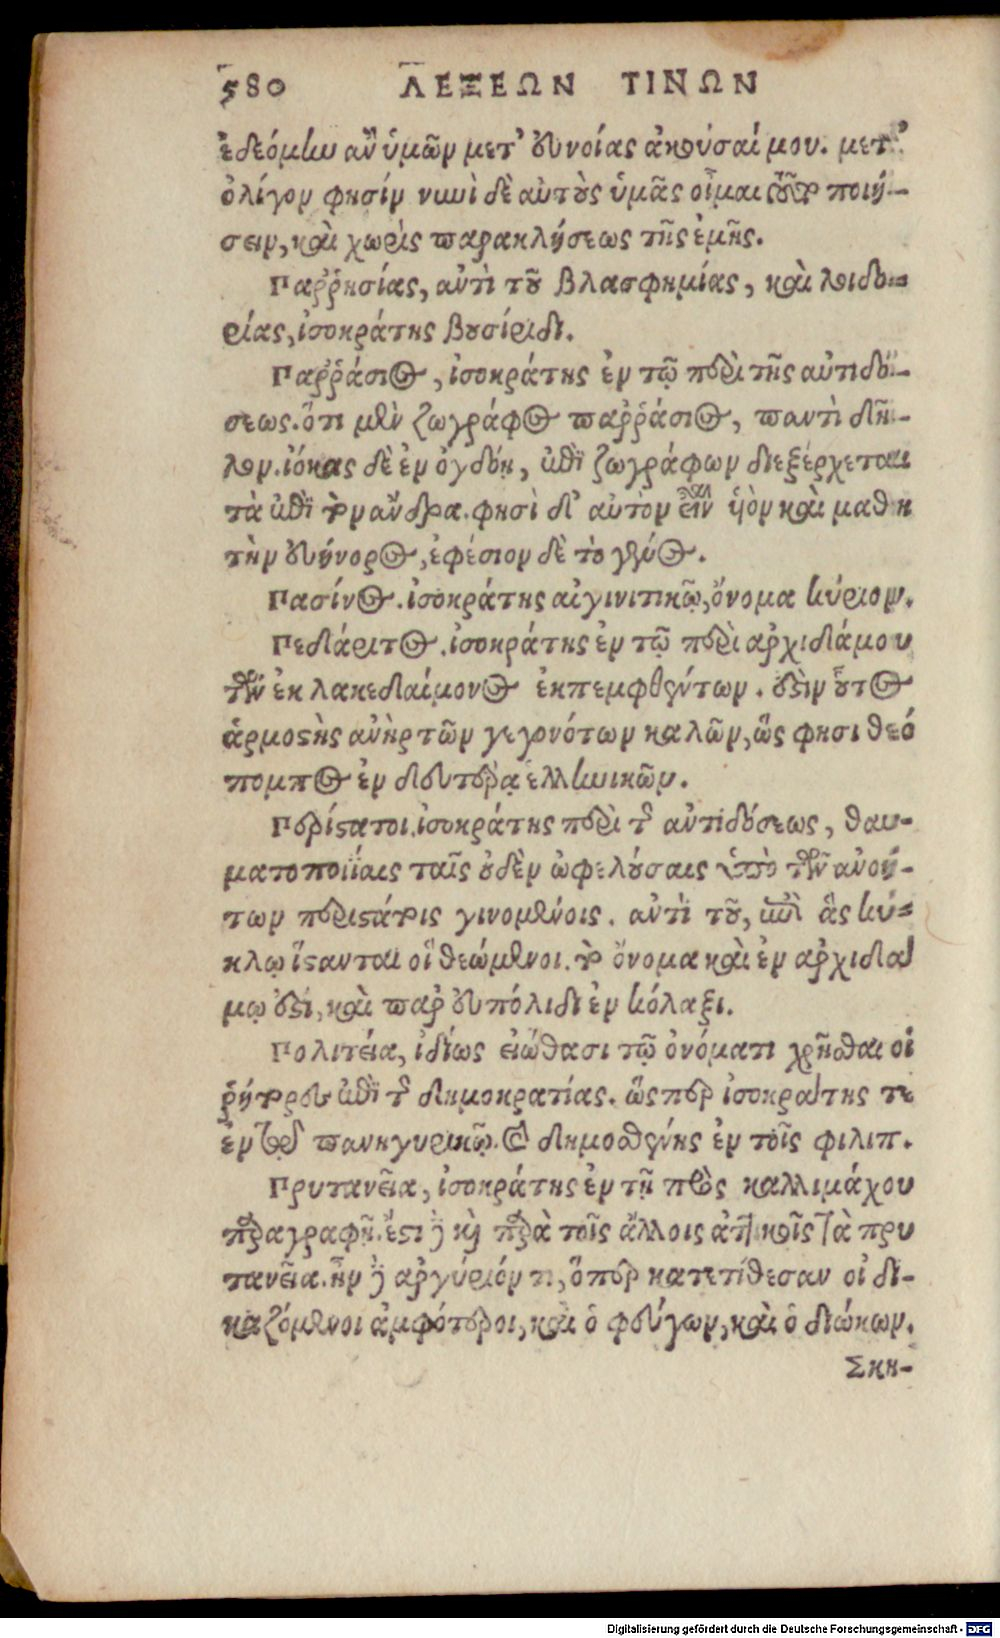 580 ΛΕΞΕΩΝ ΤΙΝΩΝ
ἐδεόμην ἂν ὑμῶν μετ' εὐνοίας ἀκοῦσαί μου. μετ'
ὀλίγον φησίν νυνὶ δὲ αὐτοὺς ὑμᾶς οἶμαι τοῦτο ποιή-
σειν, καὶ χωρὶς παρακλήσεως τῆς ἐμῆς.
Παῤῥησίας, ἀντὶ τοῦ βλασφημίας, καὶ λοιδο-
ρίας, ἰσοκράτης βουσίριδι.
Παῤῥάσιος, ἰσοκράτης ἐν τῷ περὶ τῆς ἀντιδό-
σεως. ὅτι μὲν ζωγράφος παῤῥάσιος, παντὶ δῆ-
λον. ἰόκας δὲ ἐν ὀγδόῃ, ἐπὶ ζωγράφων διεξέρχεται
τὰ ἐπὶ τὸν ἄνδρα. φησὶ δ' αὐτὸν εἶναι ὑὸν καὶ μαθη
τὴν εὐήνορος, ἐφέσιον δὲ τὸ γένος.
Πασίνος. ἰσοκράτης αἰγινιτικῷ, ὄνομα κύριον.
Πεδιάριτος. ἰσοκράτης ἐν τῷ περὶ ἀρχιδιάμου
τῶν ἐκ λακεδιαίμονος ἐκπεμφθέντων. ἐστὶν οὗτος
ἁρμοστὴς ἀνὴρ τῶν γεγονότων καλῶν, ὥς φησι θεό
πομπος ἐν δευτέρᾳ ἑλληνικῶν.
Περίστατοι. ἰσοκράτης περὶ τῆς ἀντιδόσεως, θαυ-
ματοποιΐαις ταῖς οὐδὲν ὠφελούσαις ὑπὸ τῶν ἀνοή-
των περιστάτοις γινομένοις. ἀντὶ τοῦ, ἐφ' ἃς κύ-
κλῳ ἵστανται οἱ θεώμενοι. τὸ ὄνομα καὶ ἐν ἀρχιδιά
μῳ ἐστὶ, καὶ παρ' εὐπόλιδι ἐν κόλαξι.
Πολιτεία, ἰδίως εἰώθασι τῷ ὀνόματι χρῆσθαι οἱ
ῥήτορες ἐπὶ τῆς δημοκρατίας. ὥςπερ ἰσοκράτης τε
ἐν τῷ πανηγυρικῷ. καὶ δημοσθένης ἐν τοῖς φιλιπ.
Πρυτανεῖα, ἰσοκράτης ἐν τῇ πρὸς καλλιμάχου
παραγραφῇ. ἔστι δὲ καὶ παρὰ τοῖς ἄλλοις ἀττικοῖς τὰ πρυ
τανεῖα. ἦν δὲ ἀργύριόν τι, ὅπερ κατετίθεσαν οἱ δι-
καζόμενοι ἀμφότεροι, καὶ ὁ φεύγων, καὶ ὁ διώκων.
Σκη-
Digitalisierung gefördert durch die Deutsche Forschungsgemeinschaft - DFG